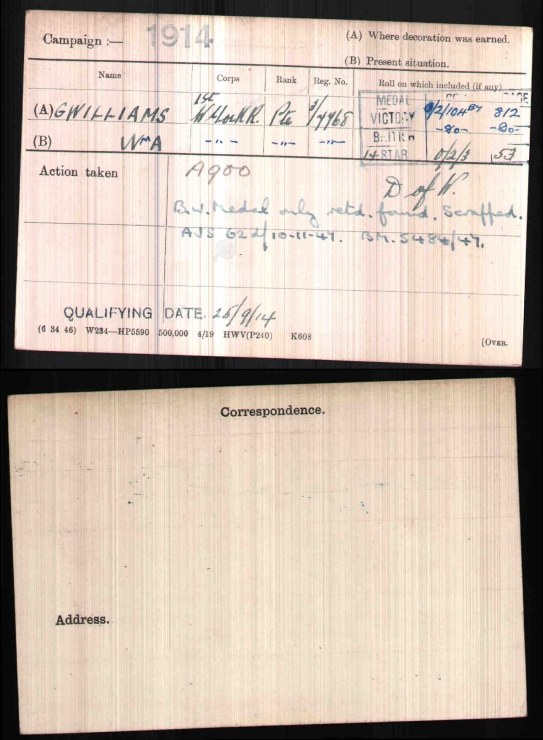 Campaign :— 1914
(A) Where decoration was earned.
(B) Present situation.
Name Corps Rank Reg. No. Roll on which included (if any)
MEDAL 812
(A) GWILLIAMS 1st Pte 3/7768 VICTORY -do- -do-
(B) Wm A -"- -"- -"- BRITISH
STAR 0/2/3 53
Action taken A900
D of W.
B.W. Medal only retd. found. Scrapped.
AJS 622/10-11-47. BM. 5484/47.
QUALIFYING DATE. 25/9/14
(6 34 46) W234—HP5590 500,000 4/19 HWV(P240) K608
[OVER.
Correspondence.
Address.